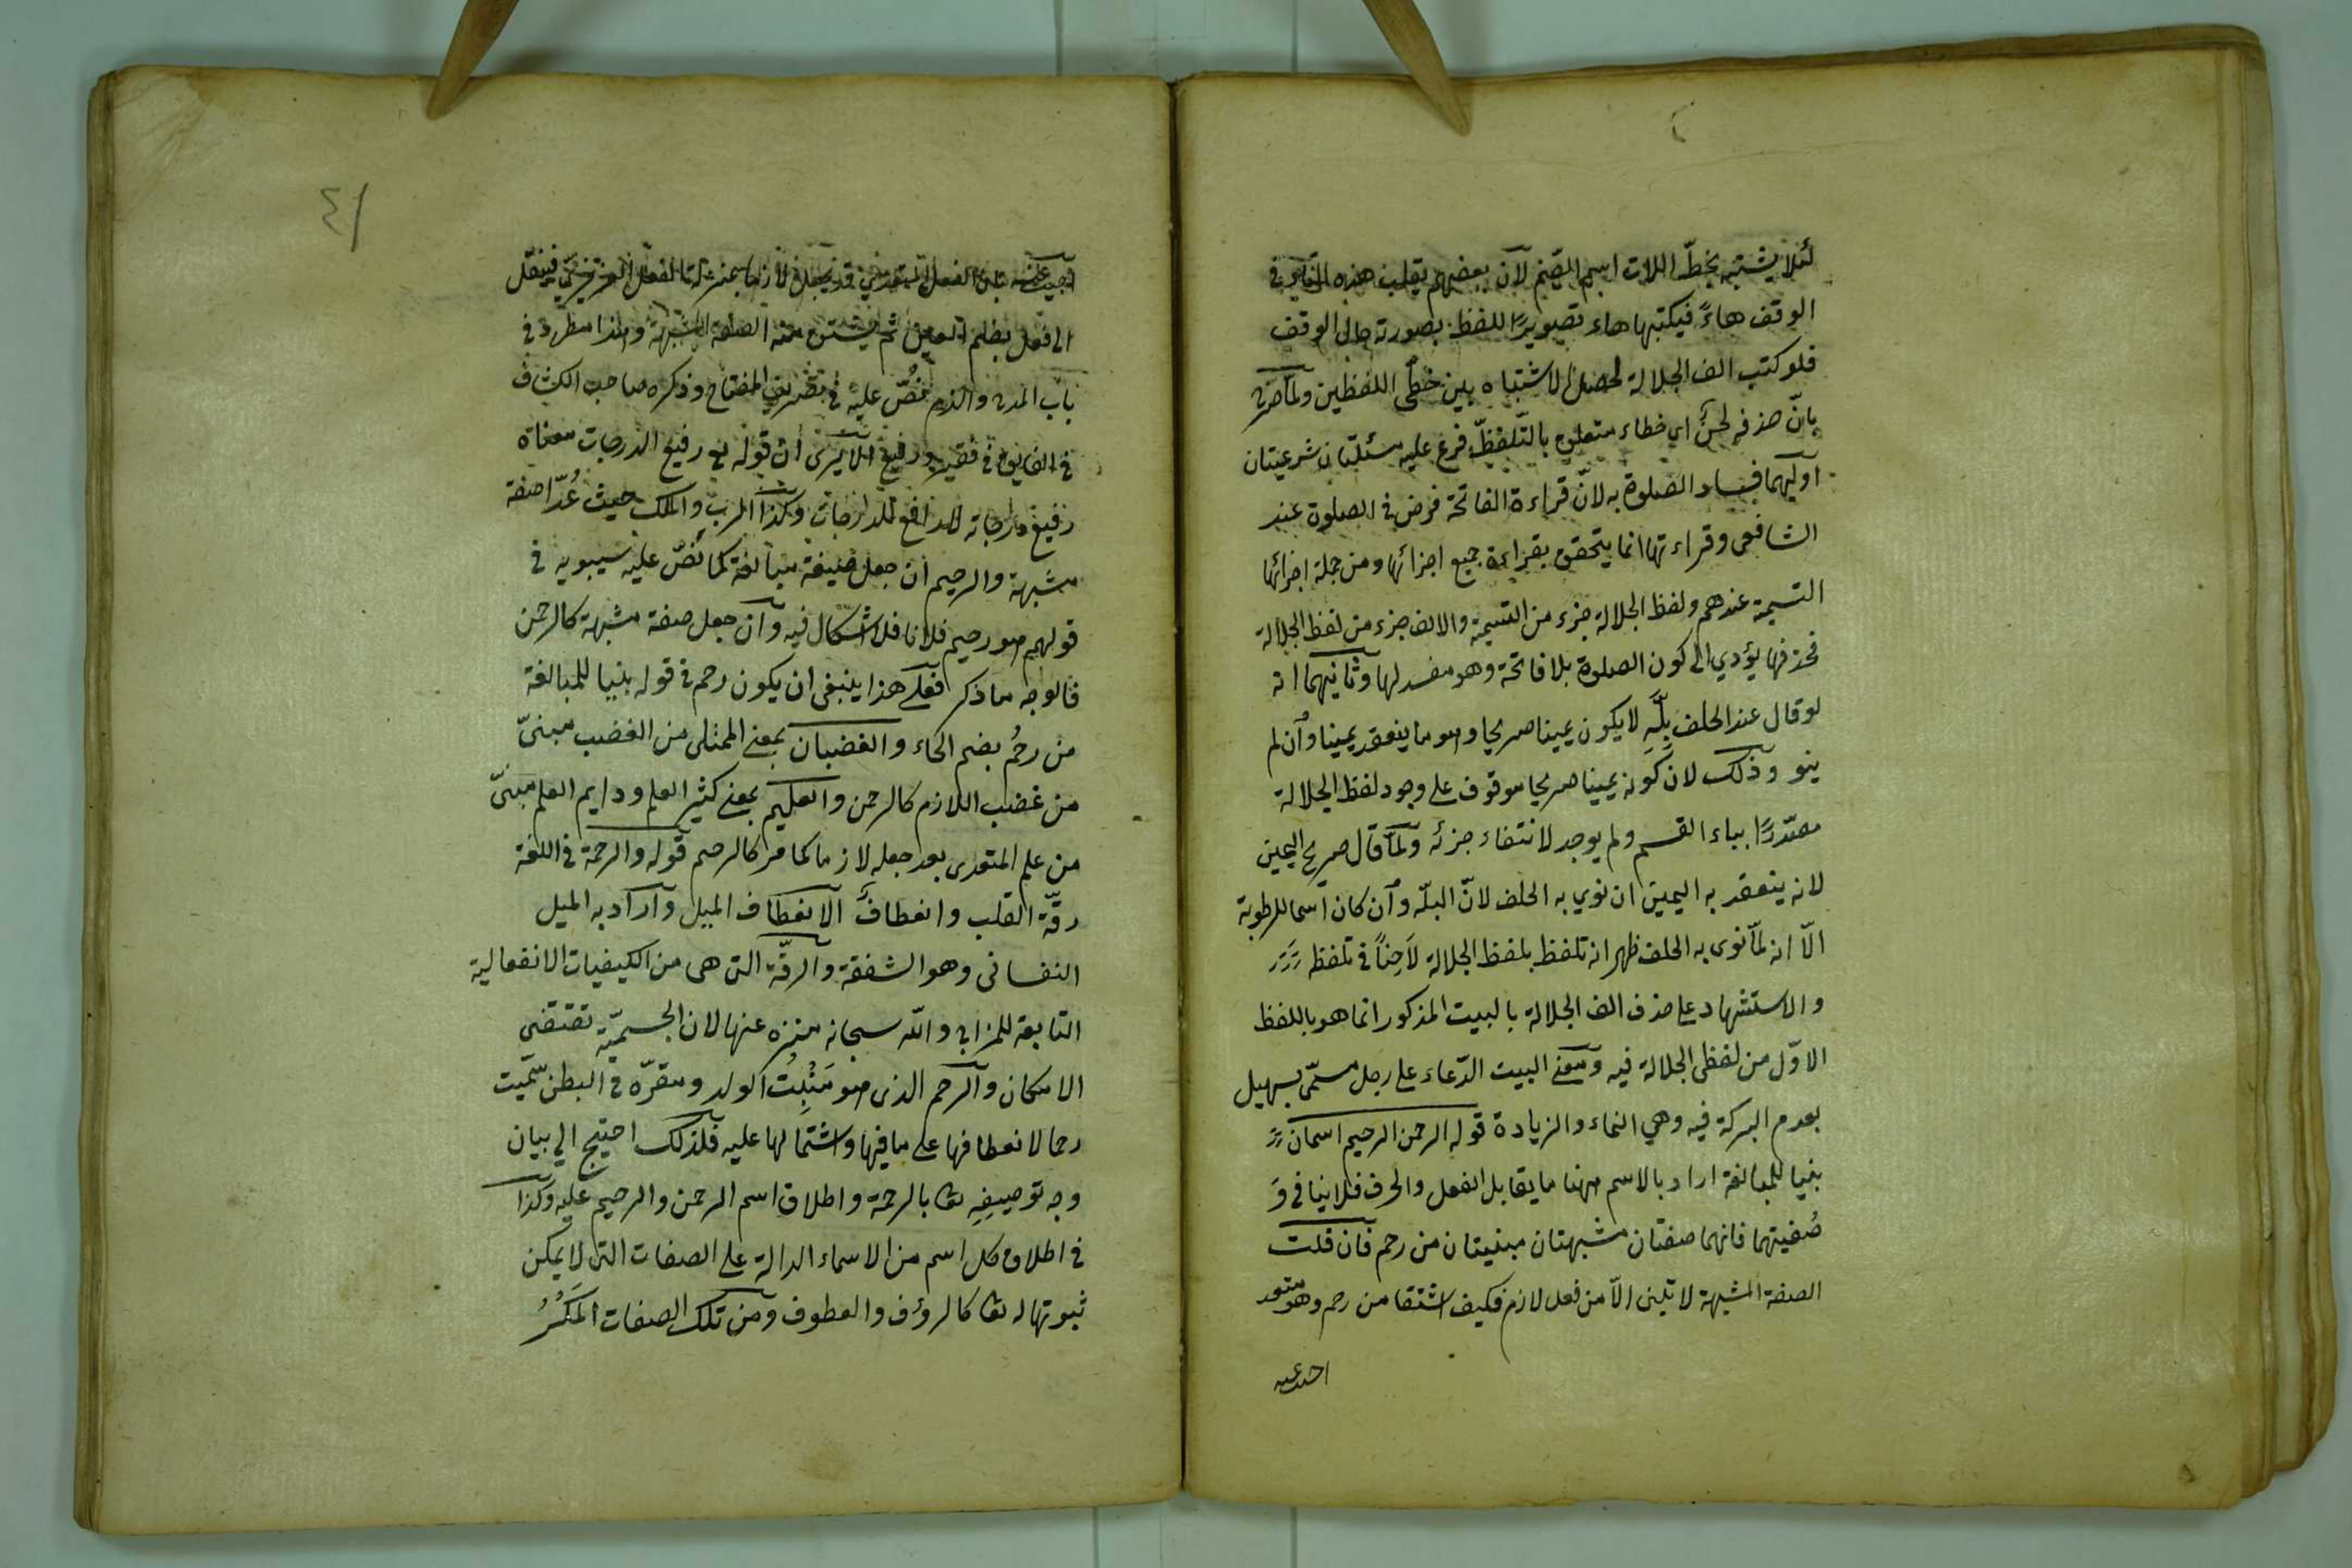 لئلا يشتبه بخطّ اللات اسم الصّنم لان بعضهم يقلب هذه التاء في
الوقف هاءً فيكتبها هاء تصويرًا للفظ بصورة حال الوقف
فلو كتب الف الجلالة لحصل الاشتباه بين خطّى اللفظين ولما صرّح
بانّ حذفه لحنٌ اي خطاء متعلق بالتّلفّظ فرع عليه مسئلتان شرعيتان
اوليهما فساد الصلوة به لانّ قراءة الفاتحة فرض في الصلوة عند
الشافعى وقراءتها انما يتحقق بقراءة جميع اجزائها ومن جملة اجزائها
التسمية عندهم ولفظ الجلالة جزء من التسمية والالف جزء من لفظ الجلالة
فحذفها يؤدي الى كون الصلوة بلا فاتحة وهو مفسد لها وثانيهما انه
لو قال عند الحلف بِلَّهِ لا يكون يمينا صريحا وهو ما ينعقد يمينا وان لم
ينو وذلك لان كونه يمينا صريحا موقوف على وجود لفظ الجلالة
مصدّرًا بباء القسم ولم يوجد لانتفاء جزئه ولما قال صريح اليمين
لانه ينعقد به اليمين ان نوي به الحلف لانّ البلّه وان كان اسما للرطوبة
الّا انه لما نوى به الحلف ظهر انه تلفظ بلفظ الجلالة لاحِناً في تلفظه
والاستشهاد على حذف الف الجلالة بالبيت المذكور انما هو باللفظ
الاوّل من لفظى الجلالة فيه ومعنى البيت الدّعاء على رجل مسمّى بسهيل
بعدم البركة فيه وهي النماء والزيادة قوله الرحمن الرحيم اسمان
بنيا للمبالغة اراد بالاسم ههنا ما يقابل الفعل والحرف فلا ينافي وَ
صْفيتهما فانهما صفتان مشبهتان مبنيتان من رحم فان قلت
الصفة المشبهة لا تبنى الّا من فعل لازم فكيف اشتقا من رحم وهو متعد
٤١
اجيب عنه بان الفعل المتعدي قد يجعل لازما بمنزلة الفعل الغريزيّ فينقل
الى فعل بضم العين ثم يشتق منه الصفة المشبهة وهذا مطرد في
باب المدح والذم نُصّ عليه في تصريف المفتاح وذكره صاحب الكشاف
في الفايق في فقير ورفيع الا يرى ان قوله تع رفيع الدرجات معناه
رفيع درجاته لا رافع للدرجات وكذا الرب والملك حيث عُدّا صفة
مشبهة والرحيم ان جعل صيغة مبالغة كما نصّ عليه سيبويه في
قولهم هو رحيم فلانا فلا اشكال فيه وان جعل صفة مشبهة كالرحمن
فالوجه ما ذكر فعلى هذا ينبغى ان يكون رحم في قوله بنيا للمبالغة
من رحُم بضم الحاء والغضبان بمعنى الممتلى من الغضب مبنىّ
من غضب اللازم كالرحمن والعليم بمعنى كثير العلم ودايم العلم مبنىّ
من علم المتعدى بعد جعله لازما كما مر كالرحيم قوله والرحمة في اللغة
رقّة القلب وانعطافٌ الانعطاف الميل واراد به الميل
النفسانى وهو الشفقة والرقّة التى هى من الكيفيات الانفعالية
التابعة للمزاج والله سبحانه منزه عنها لان الجسميّه تقتضى
الامكان والرحم الذى هو مَنْبِتُ الولد ومقرّه في البطن سمّيت
رحما لانعطافها على ما فيها واشتمالها عليه فلذلك احتيج الي بيان
وجه توصيفِهِ تعا بالرحمة واطلاق اسم الرحمن والرحيم عليه وكذا
في اطلاق كل اسم من الاسماء الدالة على الصفات التى لا يمكن
ثبوتها له تعا كالرؤف والعطوف ومن تلك الصفات المَكْرُ